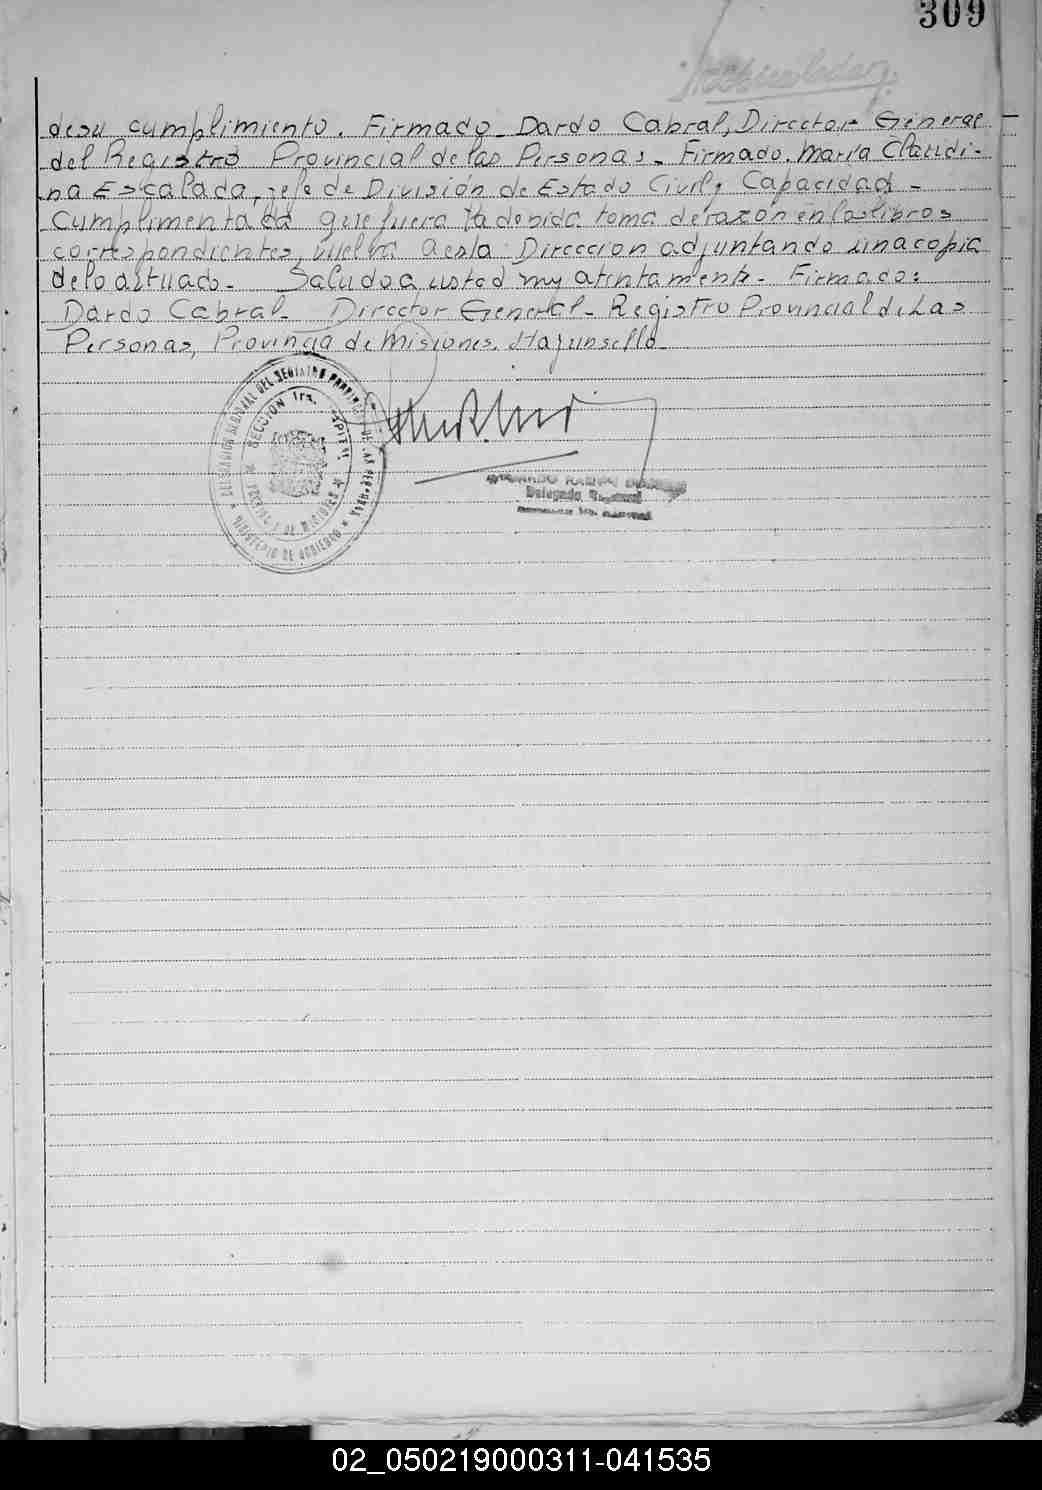 309
de su cumplimiento. Firmado Dardo Cabral, Director General
del Registro Provincial de las Personas. Firmado. María Claudi-
na Escalada, jefe de División de Estado Civil y Capacidad -
Cumplimentada que fuera la debida toma de razon en los libros
correspondientes, vuelva a esta Direccion adjuntando una copia
de lo actuado. Saludo a usted muy atentamente. Firmado:
Dardo Cabral. Director General. Registro Provincial de Las
Personas, Provincia de Misiones. Hay un sello
DELEGACION REGIONAL DEL REGISTRO PROVINCIAL DE LAS PERSONAS
SECCION 1ra. CAPITAL
PROVINCIA DE MISIONES
MINISTERIO DE GOBIERNO
RAMON
Delegado Regional
02_050219000311-041535